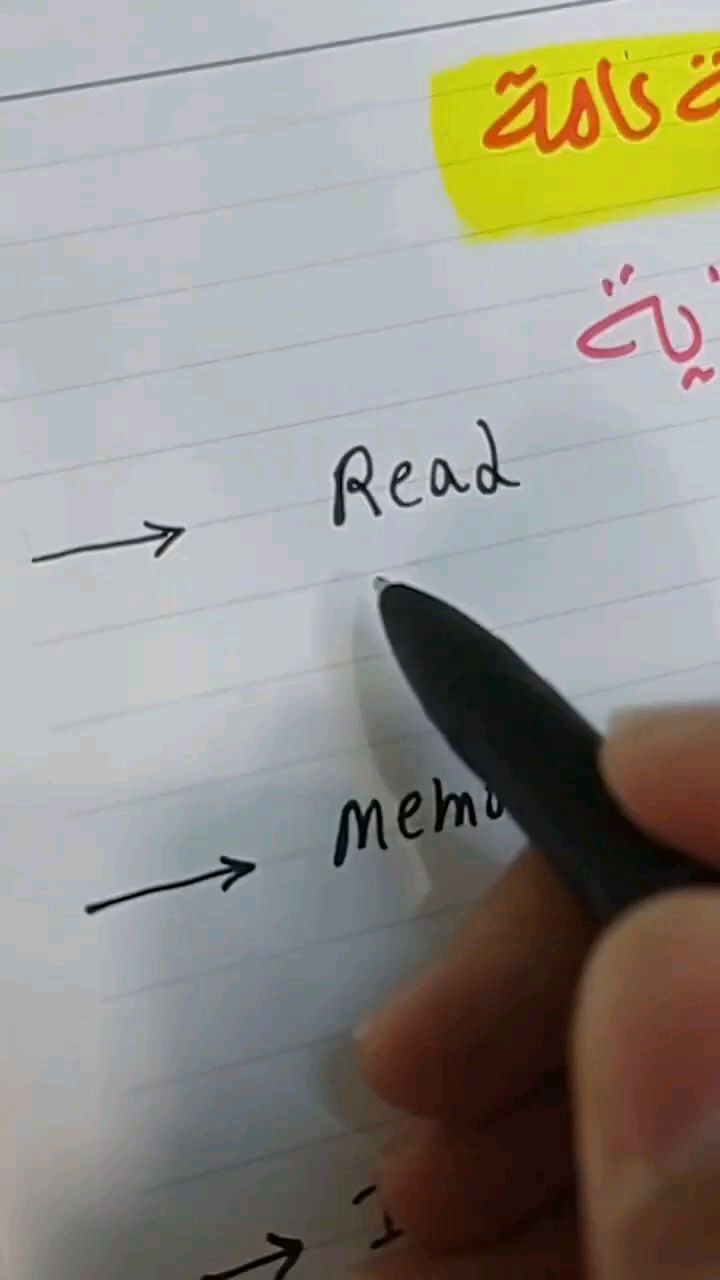 ة تامة
ية
→ Read
→ Memo
→ I